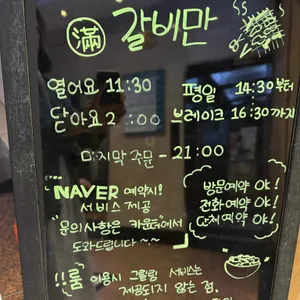 滿 갈비만
열어요 11:30
닫아요 2 :00
평일 14:30부터
브레이크 16:30까지
마지막 주문 - 21:00
NAVER 예약시!
서비스 제공
"문의사항은 카운터"에서
도와드립니다 ~~
방문예약 Ok!
전화예약 Ok!
단체예약 Ok!
!!룸 이용시 그릴링 서비스는
제공되지 않는 점.